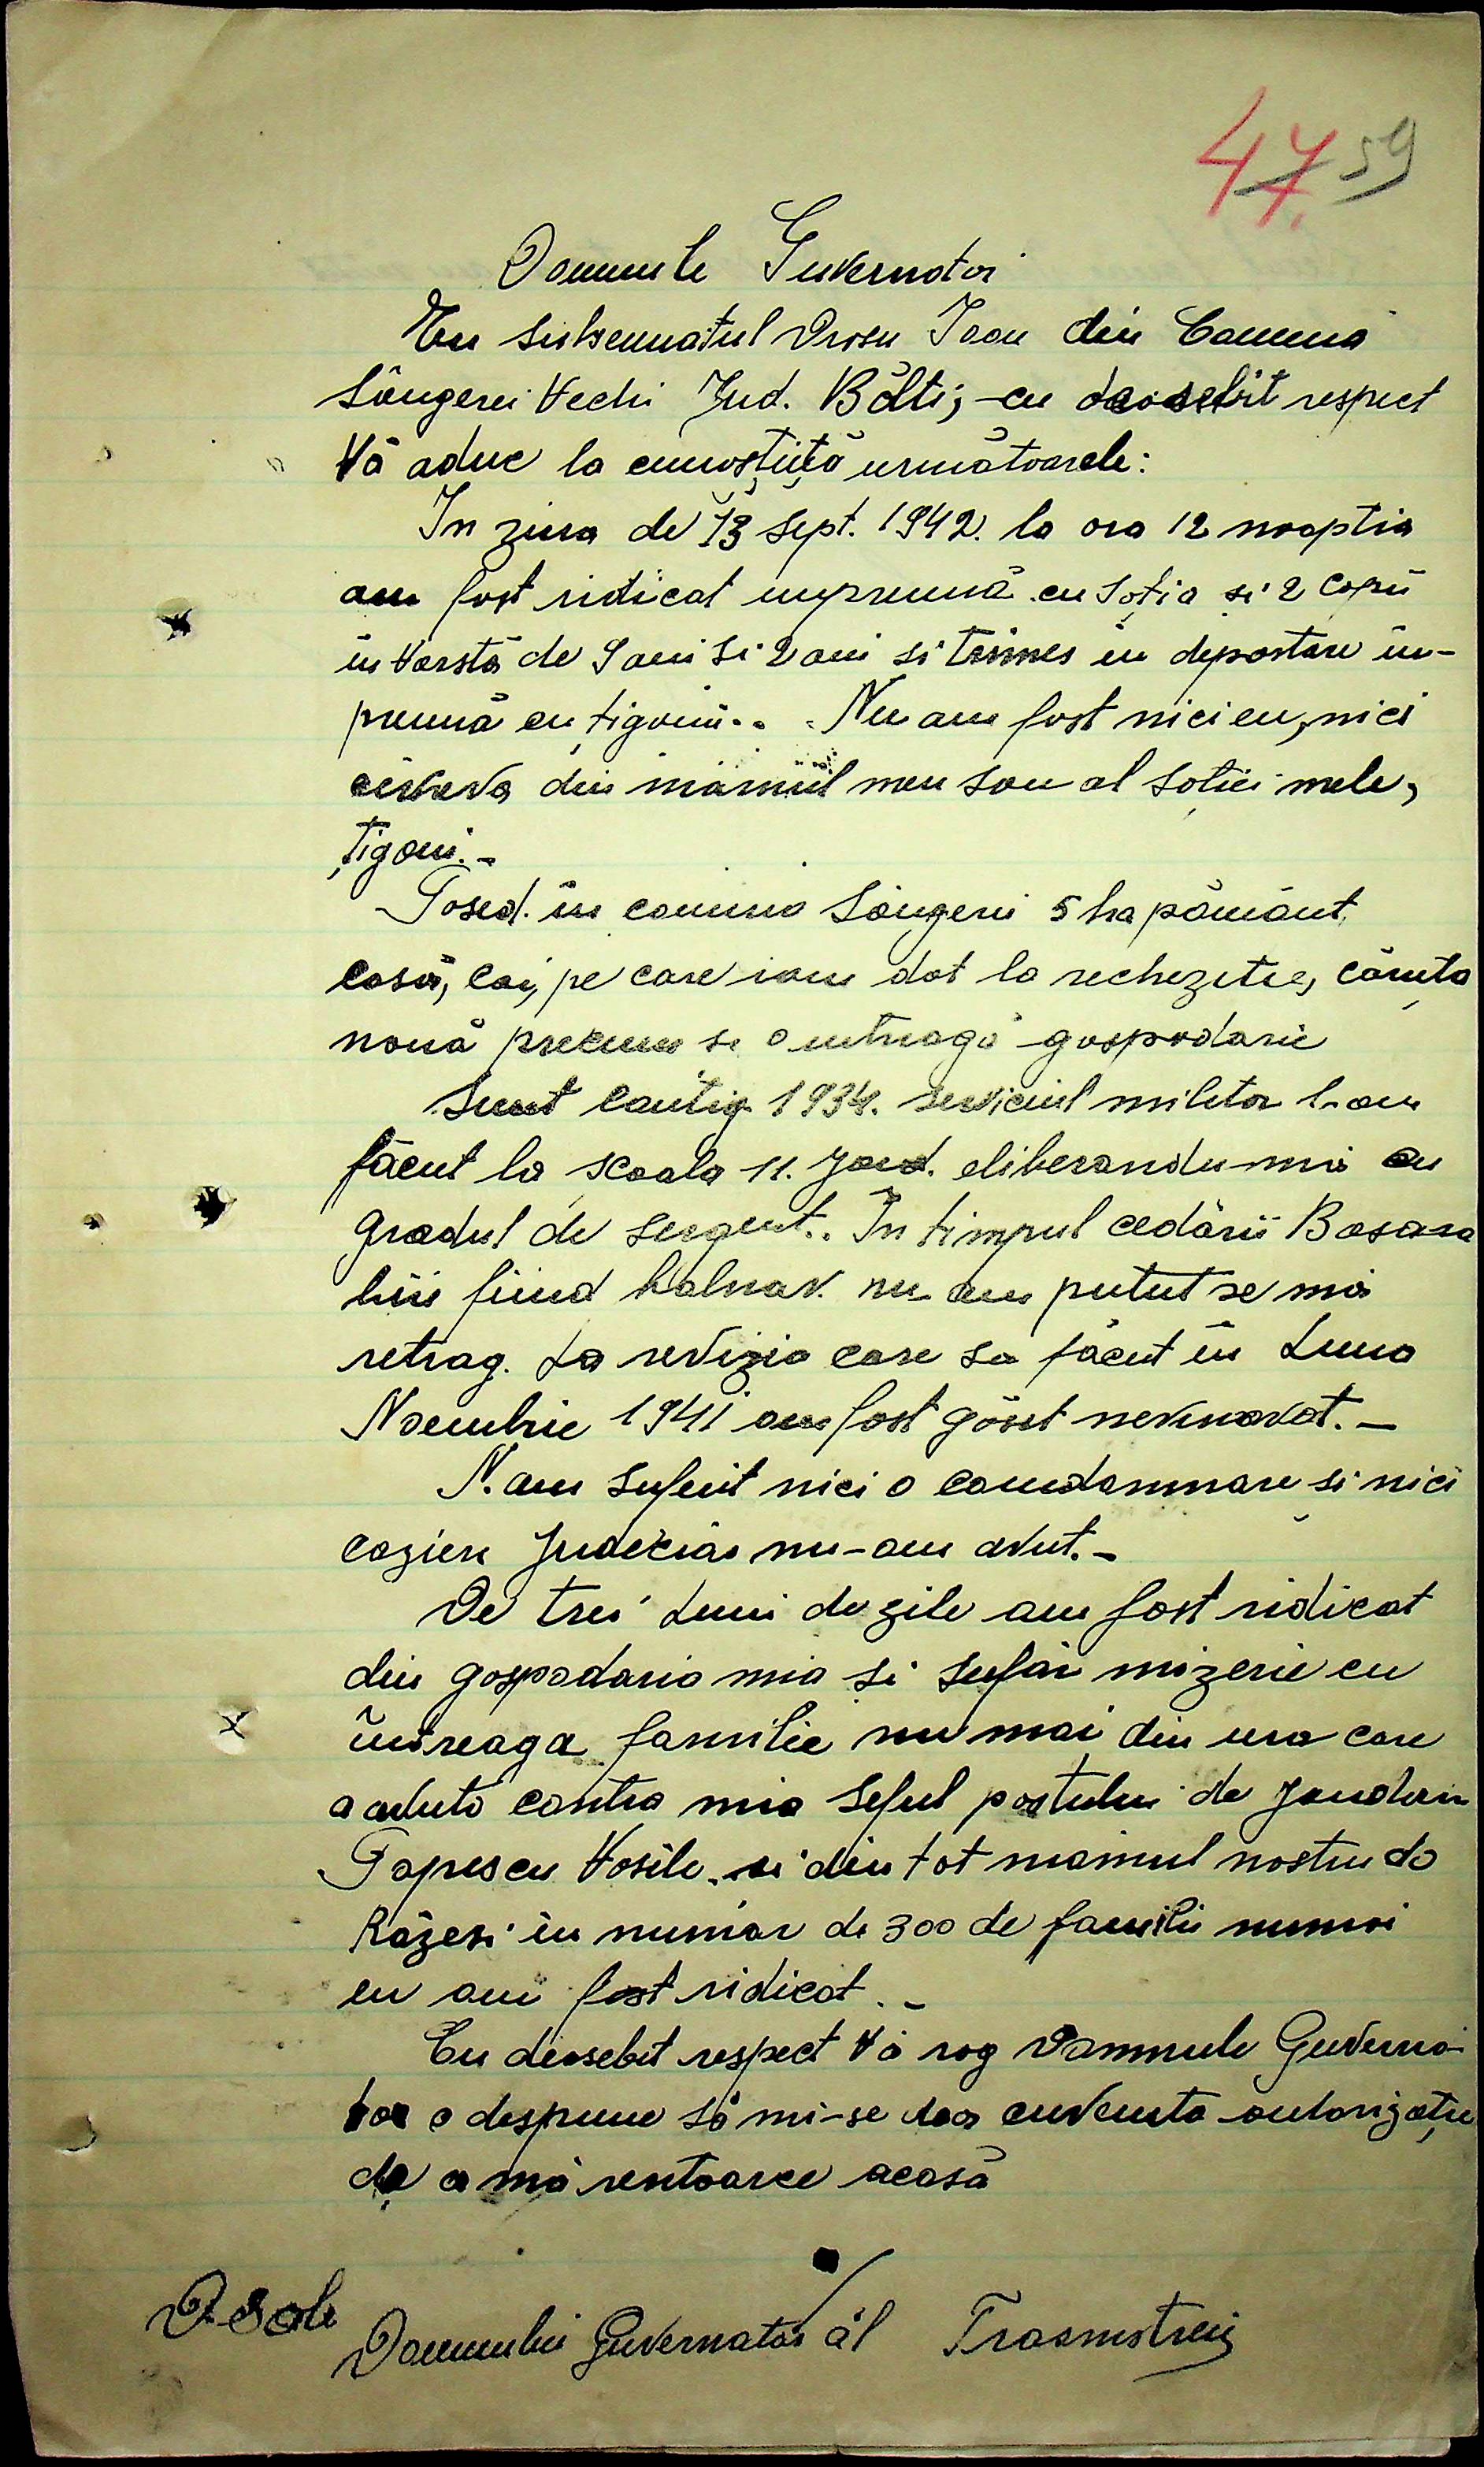 47 59
Domnule Guvernator
Eu subsemnatul Drosu Ioan din Comuna
Sângerei Vechi Jud. Bălti, cu deosebit respect
Vă aduc la cunoștiiță următoarele:
In ziua de 13 Sept. 1942. la ora 12 noaptia
am fost ridicat impreună cu soția si 2 copii
in varstă de 9 ani si 2 ani si trimes in deportare im-
preună cu țiganii.. Nu am fost nici eu, nici
cineva din niamul meu sau al soției mele,
țigani.-
Posed. in comuna Sângerei 5 ha pământ,
casă, cai, pe care iam dat la rechezitie, căruța
nouă precum si o intreagă gospodarie
Sunt contig. 1934. serviciul militar l-am
făcut la scoala 11. Jand. eliberandu-mă cu
gradul de sergent.. In timpul cedării Basara
biii fiind bolnav. nu am putut se mă
retrag. La revizia care sa făcut in Luna
Noembrie 1941 am fost găsit nevinovat.-
N. am suferit nici o comdamnare si nici
cazier Judiciar nu-am avut.-
De trei Luni de zile am fost ridicat
din gospodaria mia si sufăr mizerie cu
intreaga familie nu mai din ura care
a aduto contra mia Seful postului de Jandarm
Popescu Vasile. si din tot niamul nostru de
Răzesi in număr de 300 de familii numai
eu am fost ridicat.-
Cu deosebit respect Vă rog Domnule Guverna-
tor a despune să mi-se dea cuvenita autorizație
de a mă rentoarce acasă
Domnului Guvernator al Trasnistriei